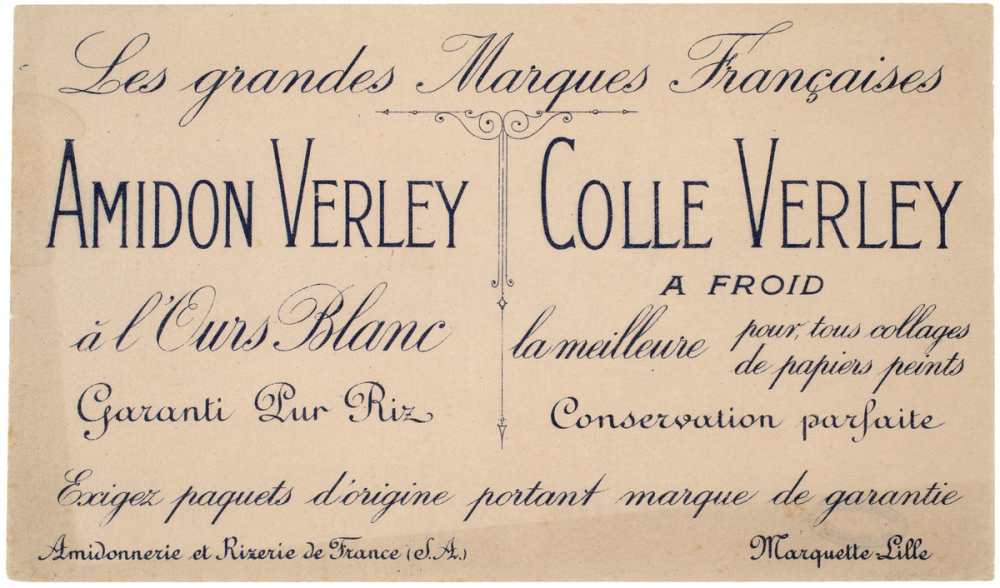 Les grandes Marques Françaises
AMIDON VERLEY
à l'Ours Blanc
Garanti Pur Riz
COLLE VERLEY
A FROID
la meilleure pour tous collages
de papiers peints
Conservation parfaite
Exigez paquets d'origine portant marque de garantie
Amidonnerie et Rizerie de France (S.A.)
Marquette-Lille